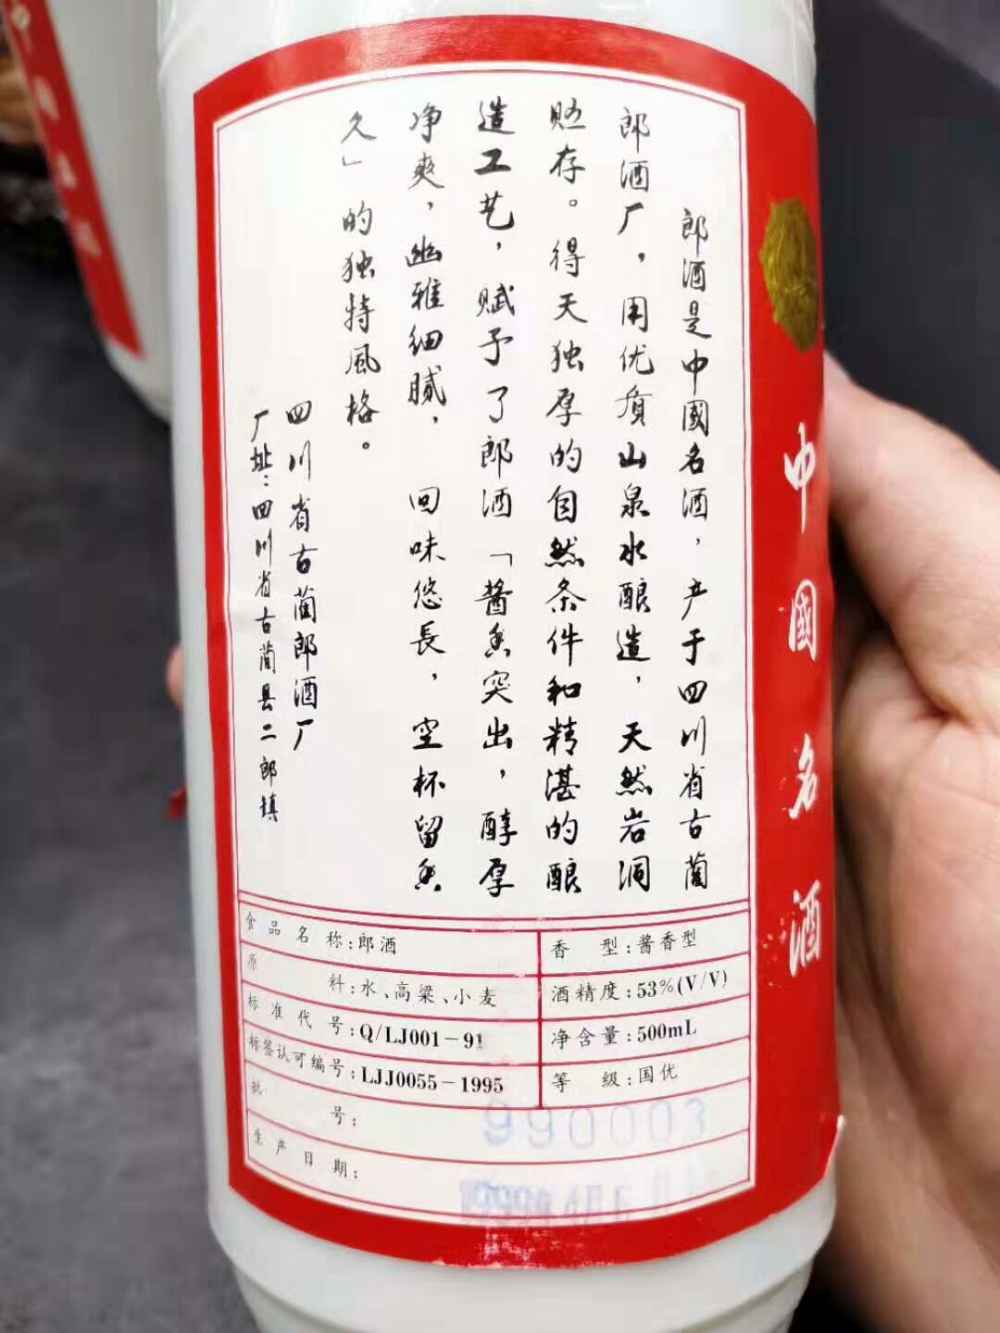 郎酒是中國名酒，产于四川省古蔺
郎酒厂，用优质山泉水酿造，天然岩洞
贮存。得天独厚的自然条件和精湛的酿
造工艺，赋予了郎酒「酱香突出，醇厚
净爽，幽雅细腻，回味悠長，空杯留香
久」的独特風格。
四川省古蔺郎酒厂
厂址：四川省古蔺县二郎镇
食品名称：郎酒
香型：酱香型
原料：水、高粱、小麦
酒精度：53%(V/V)
标准代号：Q/LJ001-91
净含量：500mL
标签认可编号：LJJ0055-1995
等级：国优
批号：990003
生产日期：
中國名酒